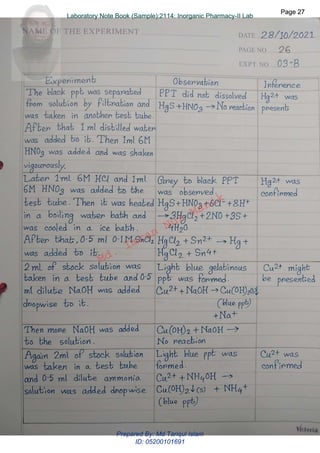 Laboratory Note Book (Sample):2114: Inorganic Pharmacy-II Lab
Page 27
NAME OF THE EXPERIMENT
DATE 28/10/2021
PAGE NO. 26
EXPT. NO. 03-B
Experiment
Observation
Inference
The black ppt was separated
from solution by filtration and
was taken in another test tube.
After that 1 ml distilled water
was added to it. Then 1ml 6M
HNO3 was added and was shaken
vigourously.
PPT did not dissolved
HgS + HNO3 → No reaction
Hg2+ was
present
Later 1ml 6M HCl and 1ml
6M HNO3 was added to the
test tube. Then it was heated
in a boiling water bath and
was cooled in a ice bath.
After that, 0.5 ml 0.1M SnCl2
was added to it.
Grey to black PPT
was observed.
HgS + HNO3 + 6Cl- + 8H+
→ 3HgCl2 + 2NO + 3S +
4H2O
HgCl2 + Sn2+ → Hg +
HgCl2 + Sn4+
Hg2+ was
confirmed
2 ml of stock solution was
taken in a test tube and 0.5
ml dilute NaOH was added
dropwise to it.
Light blue gelatinous
ppt was formed.
Cu2+ + NaOH → Cu(OH)2↓
(blue ppt)
+Na+
Cu2+ might
be presented
Then more NaOH was added
to the solution.
Cu(OH)2 + NaOH →
No reaction
Again 2ml of stock solution
was taken in a test tube
and 0.5 ml dilute ammonia
solution was added dropwise
Light blue ppt was
formed.
Cu2+ + NH4OH →
Cu(OH)2↓(s) + NH4+
(blue ppt)
Cu2+ was
confirmed
Victoria
Prepared By: Md Tariqul Islam
ID: 05200101691